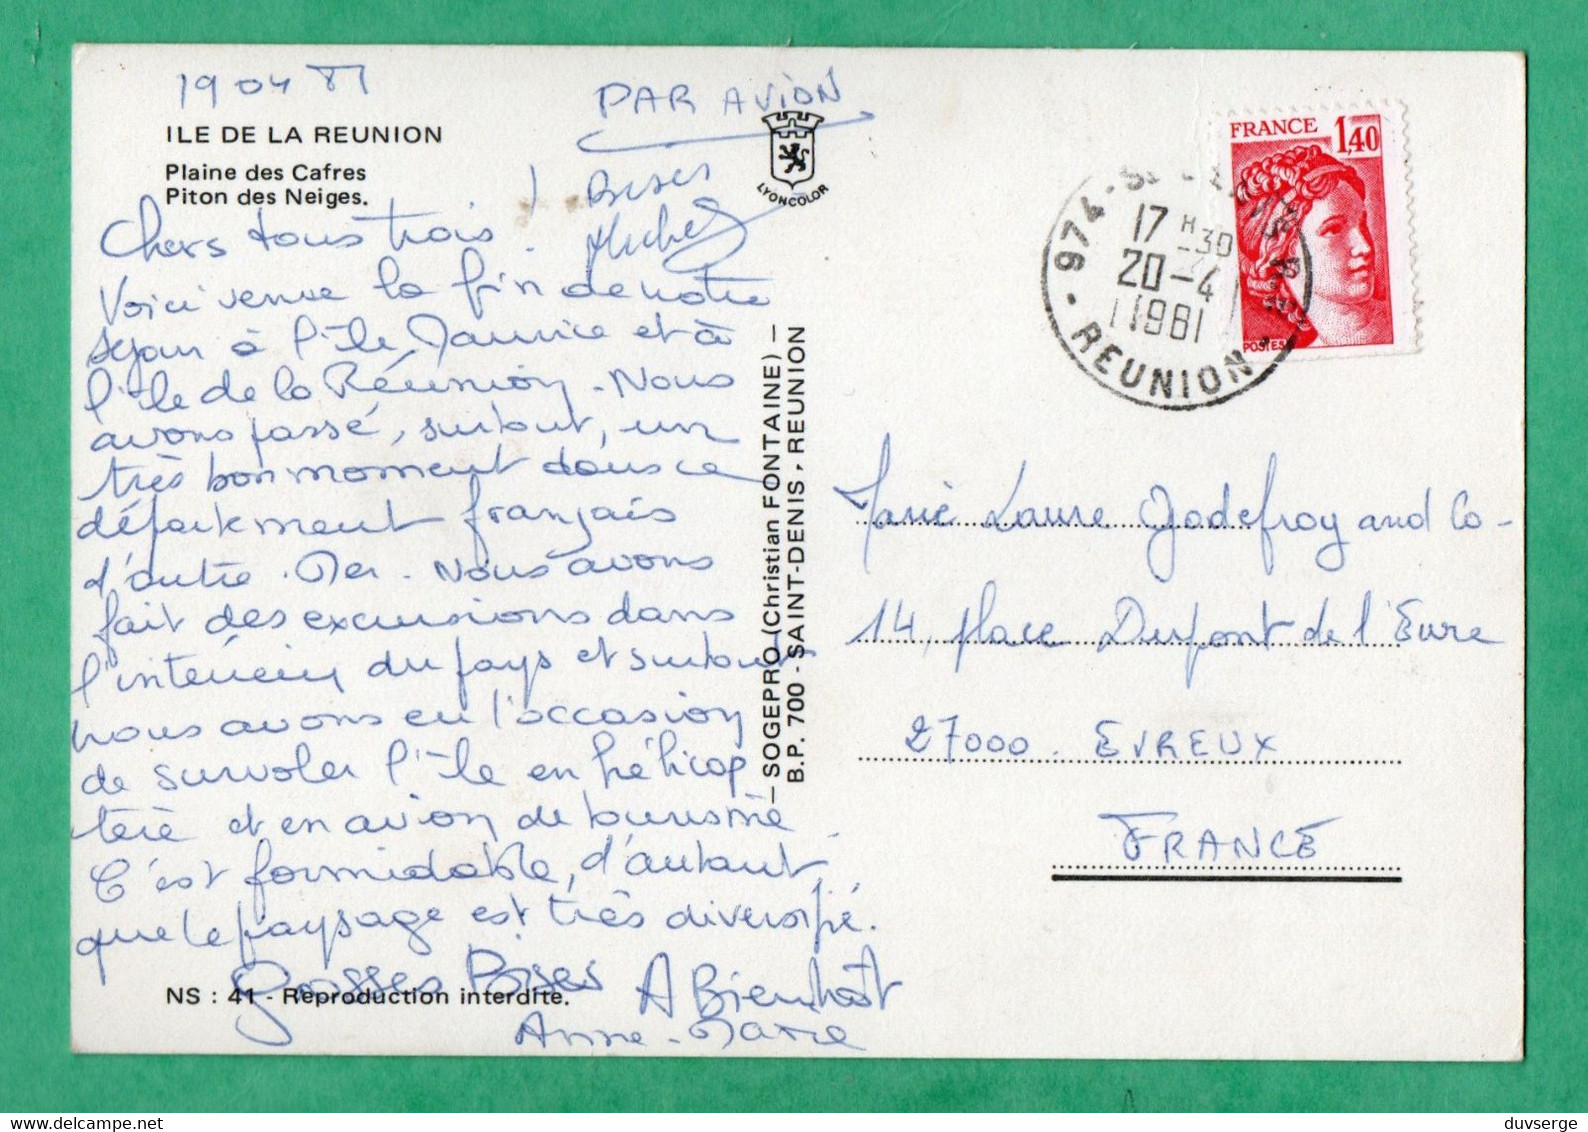 19 04 81
PAR AVION
ILE DE LA REUNION
Plaine des Cafres
Piton des Neiges.
LYONCOLOR
Bises
Michel
Chers tous trois !
Voici venue la fin de notre
séjour à l'Ile Maurice et à
l'île de la Réunion. Nous
avons passé, surtout, un
très bon moment dans ce
département français
d'outre. Mer. Nous avons
fait des excursions dans
l'intérieur du pays et surtout
nous avons eu l'occasion
de survoler l'Ile en hélicop
tère et en avion de tourisme.
C'est formidable, d'autant
que le paysage est très diversifié.
Grosses Bises
A Bientôt
Anne-Marie
NS : 41 - Reproduction interdite.
— SOGEPRO (Christian FONTAINE) —
B.P. 700 - SAINT-DENIS - REUNION
FRANCE
1,40
POSTES
974 -
17 H -30
20-4
1981
REUNION
Marie Laure Godefroy and Co-
14, place Dupont de l'Eure
27000. EVREUX
FRANCE
duvserge